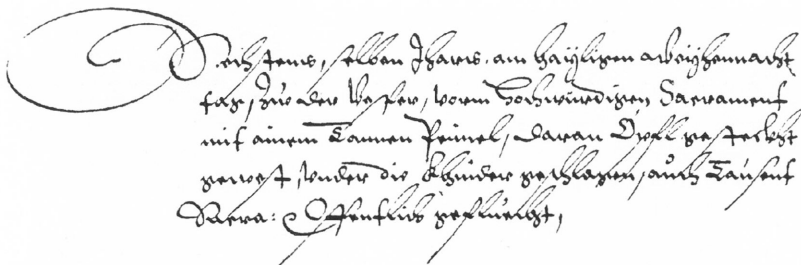 Sechstens, selben Jhars, am hayligen weyhennacht
tag, zu der Vesper, vorm Hochwürdigen Sacrament
mit ainem Tannen Peimel, daran Öpfl gesteckht
gewest, under die Khinder geschlagen, auch Tausent
Sacra: Offentlich gefluecht,